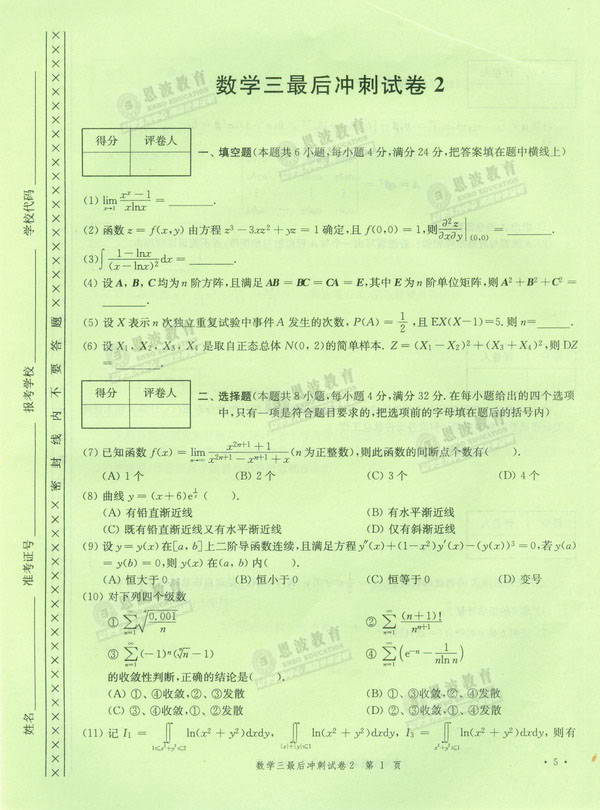 数学三最后冲刺试卷 2
得分 评卷人
一、填空题(本题共 6 小题,每小题 4 分,满分 24 分,把答案填在题中横线上)
(1) lim_{x→1} (x^x − 1)/(x ln x) = ________.
(2) 函数 z = f(x,y) 由方程 z³ − 3xz² + yz = 1 确定,且 f(0,0) = 1,则 ∂²z/∂x∂y |_(0,0) = ________.
(3) ∫ (1 − lnx)/(x − lnx)² dx = ________.
(4) 设 A, B, C 均为 n 阶方阵,且满足 AB = BC = CA = E,其中 E 为 n 阶单位矩阵,则 A² + B² + C² =
________.
(5) 设 X 表示 n 次独立重复试验中事件 A 发生的次数, P(A) = 1/2 , 且 EX(X−1)=5. 则 n=______.
(6) 设 X₁、X₂、X₃、X₄ 是取自正态总体 N(0, 2) 的简单样本. Z = (X₁ − X₂)² + (X₃ + X₄)²,则 DZ
= ________.
得分 评卷人
二、选择题(本题共 8 小题,每小题 4 分,满分 32 分. 在每小题给出的四个选项
中,只有一项是符合题目要求的,把选项前的字母填在题后的括号内)
(7) 已知函数 f(x) = lim_{n→∞} (x^{2n−1} + 1)/(x^{2n+1} − x^{n+1} + x) (n 为正整数),则此函数的间断点个数有( ).
(A) 1 个 (B) 2 个 (C) 3 个 (D) 4 个
(8) 曲线 y = (x+6)e^{1/x} ( ).
(A) 有铅直渐近线 (B) 有水平渐近线
(C) 既有铅直渐近线又有水平渐近线 (D) 仅有斜渐近线
(9) 设 y = y(x) 在[a, b]上二阶导函数连续,且满足方程 y″(x)+(1−x²)y′(x)−(y(x))³ = 0,若 y(a)
= y(b) = 0,则 y(x) 在(a, b) 内( ).
(A) 恒大于 0 (B) 恒小于 0 (C) 恒等于 0 (D) 变号
(10) 对下列四个级数
① ∑_{n=1}^{∞} ⁿ√0.001 / n ② ∑_{n=1}^{∞} (n+1)!/n^{n+1}
③ ∑_{n=1}^{∞} (−1)ⁿ(ⁿ√n − 1) ④ ∑_{n=1}^{∞} (e^{−n} − 1/(n ln n))
的收敛性判断,正确的结论是( ).
(A) ①、④收敛,②、③发散 (B) ①、③收敛,②、④发散
(C) ③、④收敛,①、②发散 (D) ②、③收敛,①、④发散
(11) 记 I₁ = ∬ ln(x² + y²)dxdy, ∬_{|x|+|y|≤1} ln(x² + y²)dxdy, I₃ = ∬ ln(x² + y²)dxdy, 则有
数学三最后冲刺试卷2 第 1 页 · 5 ·
学校代码
报考学校
准考证号
姓名
密 封 线 内 不 要 答 题
恩波教育
ENBO EDUCATION